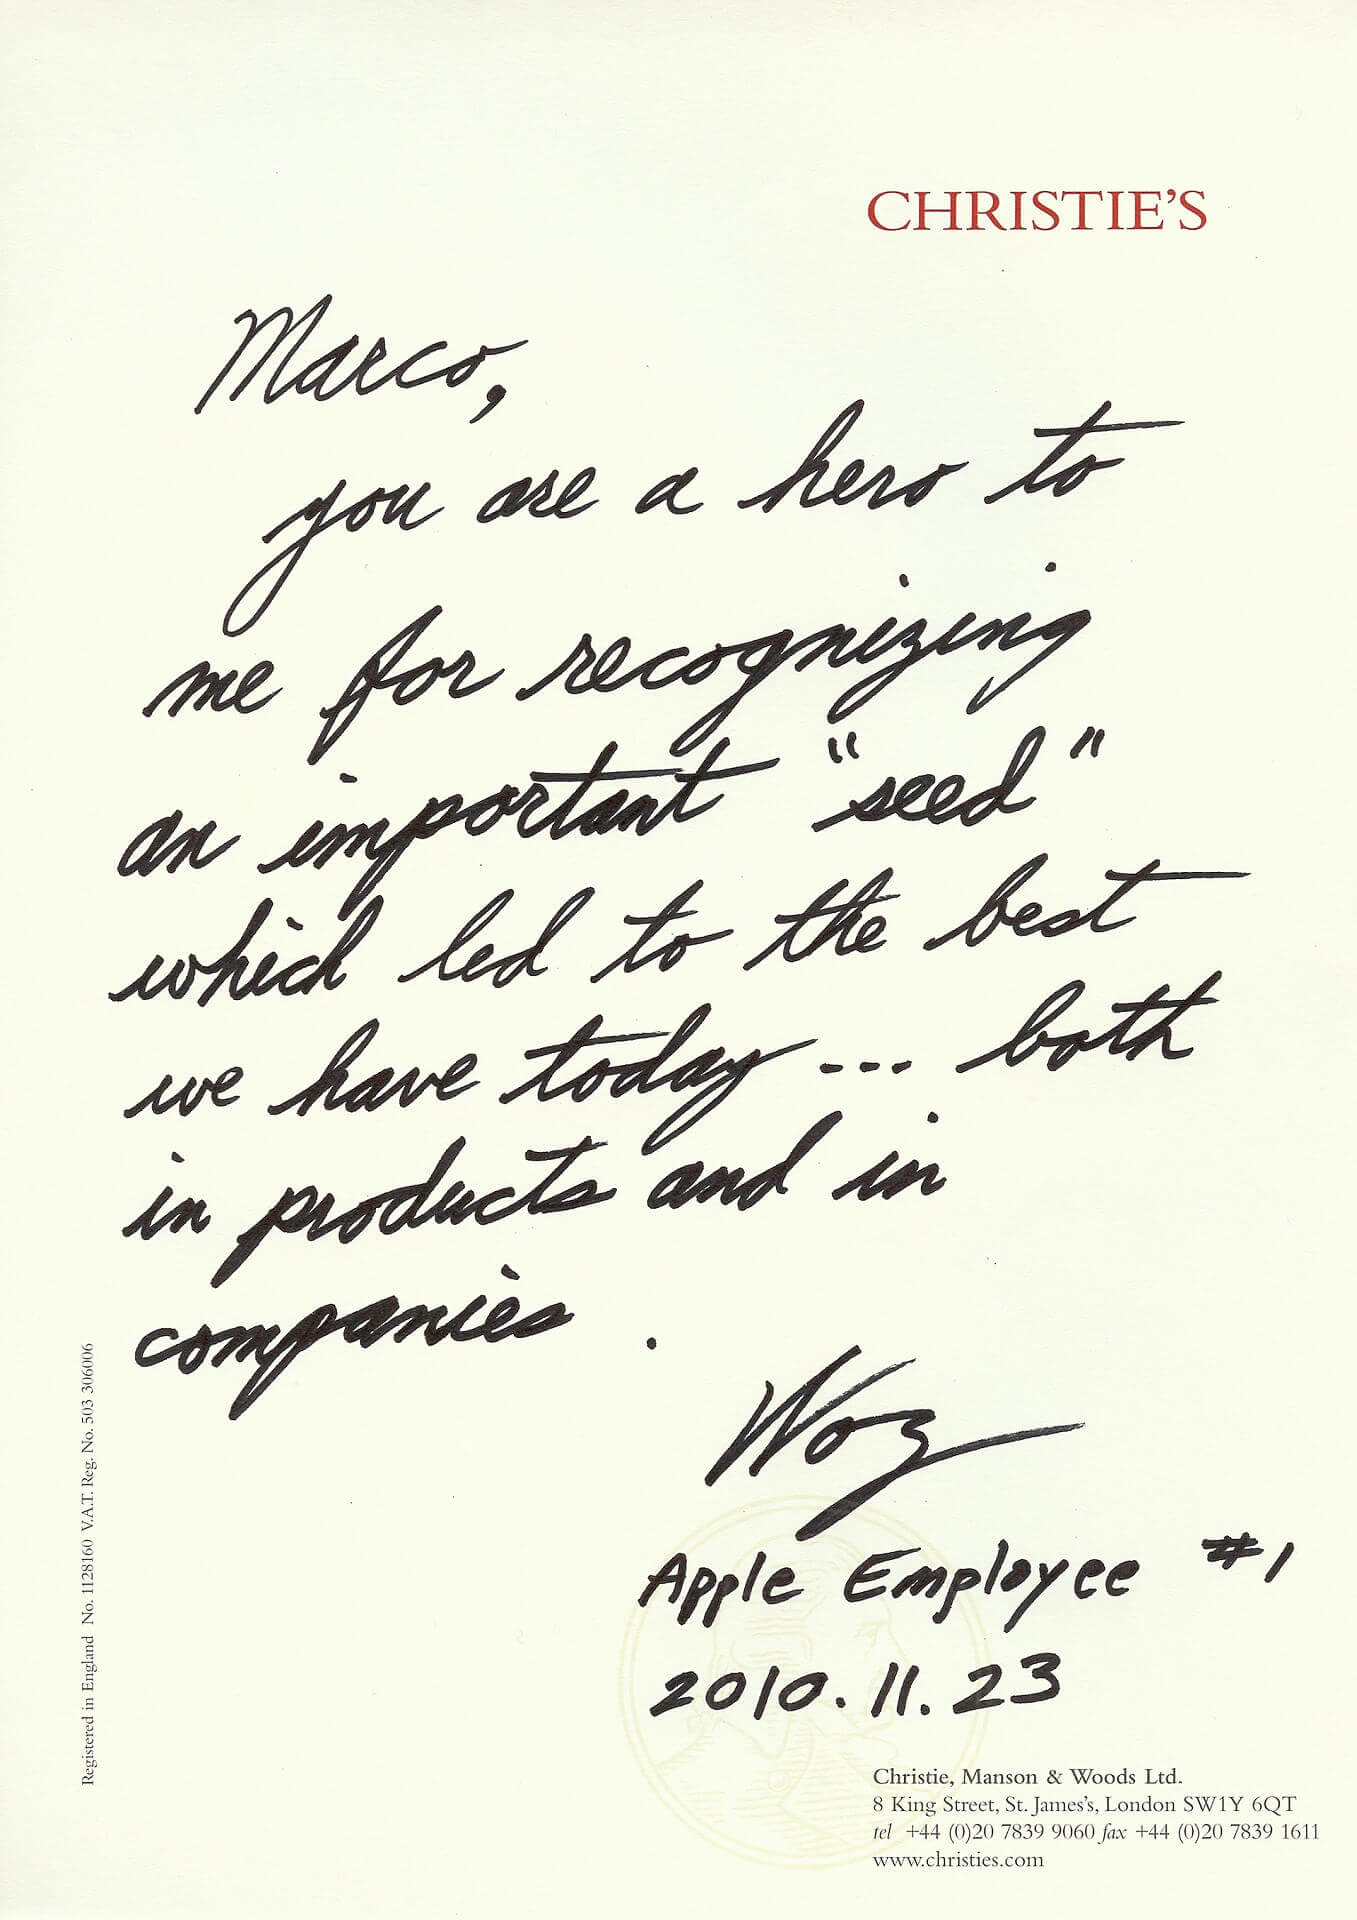 CHRISTIE'S
Marco,
you are a hero to
me for recognizing
an important "seed"
which led to the best
we have today --- both
in products and in
companies.
Woz
Apple Employee #1
2010.11.23
Christie, Manson & Woods Ltd.
8 King Street, St. James's, London SW1Y 6QT
tel +44 (0)20 7839 9060 fax +44 (0)20 7839 1611
www.christies.com
Registered in England No. 1128160 V.A.T. Reg. No. 503 306006